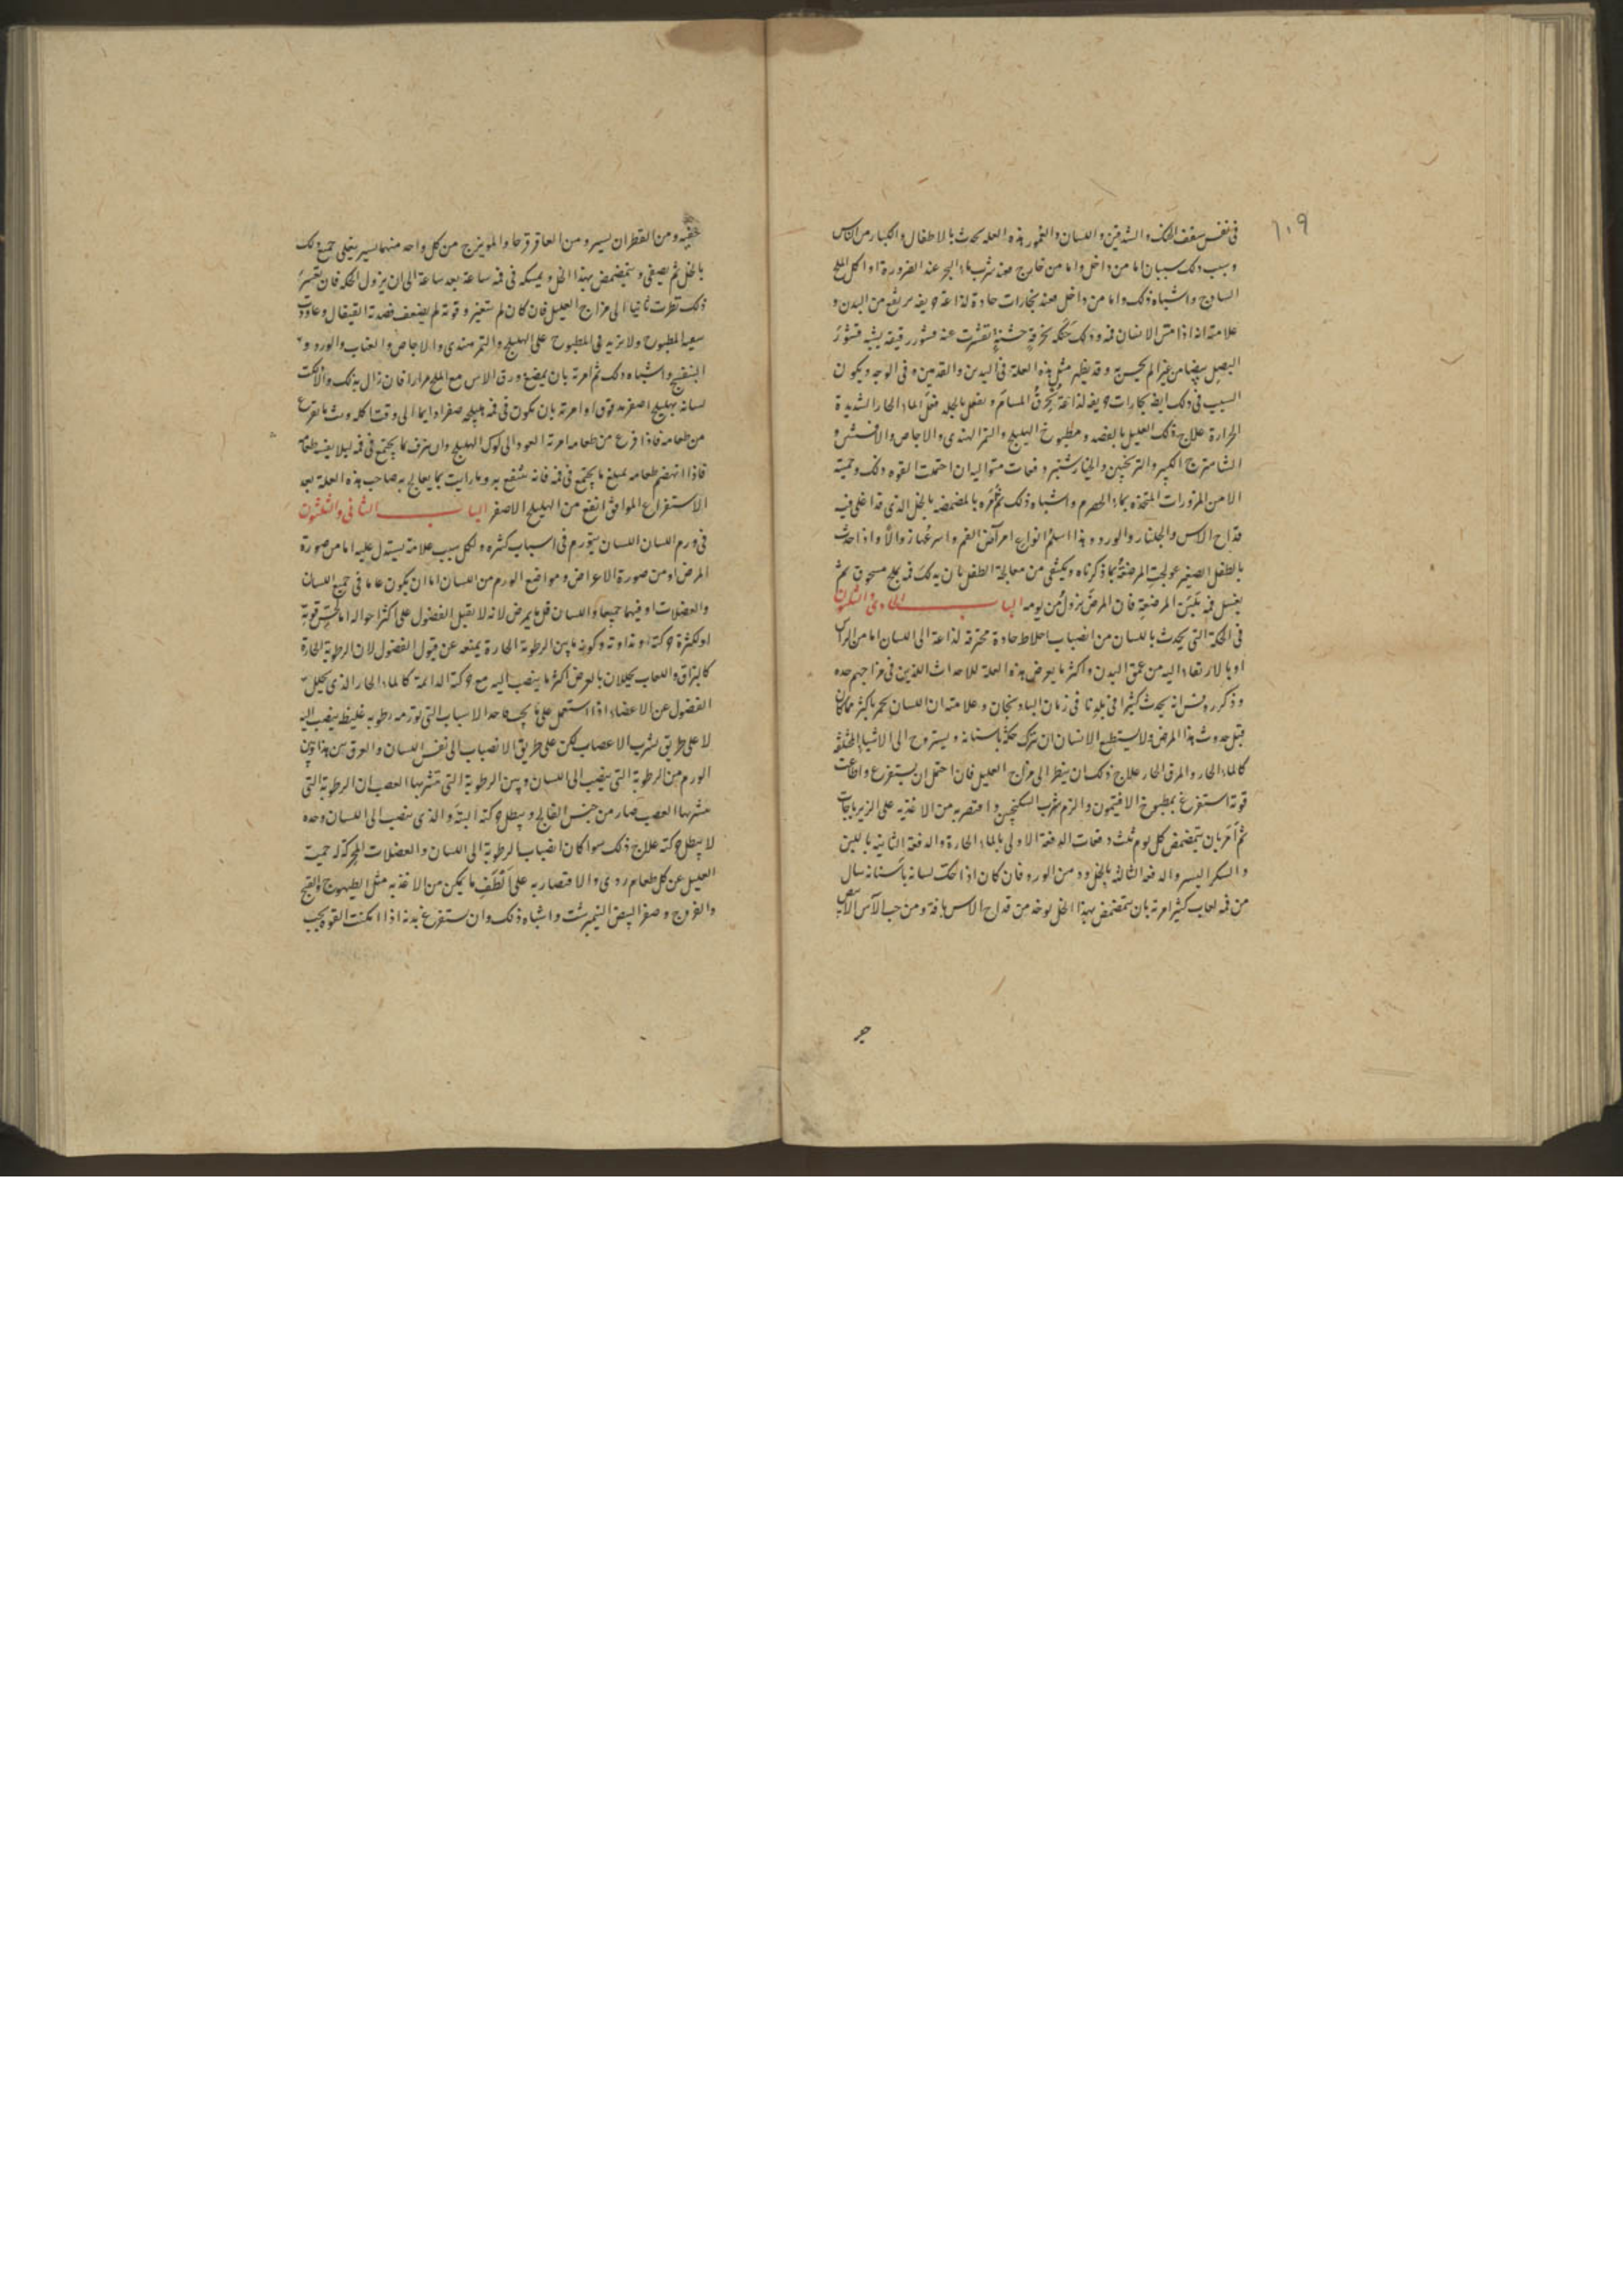 ١٠٩
في نفس سقف الحنك والشدقين واللسان والعمور هذه العله تحدث بالاطفال والكبار من الناس
وسبب ذلك سببان اما من داخل واما من خارج فعند شرب ماء البحر عند الضرورة او اكل الملح
الساذج واشباه ذلك واما من داخل فعند بخارات حادة لذاعة حريفه يرتفع من البدن و
علامته انه اذا متس الانسان فمه ودلك حنكه بخرقةٍ خشنةٍ تقشرت عنه قشور رقيقه يشبه قشور
البصل بيضا من غير الم يحس به وقد يظهر مثل هذه العلة في اليدين والقدمين وفي الوجه ويكون
السبب في ذلك ايضا بخارات حريفه لذاعة تحرق المسام ويفعل بالجلد فعل الماء الحار الشديدة
الحرارة علاج ذلك العليل بالفصد ومطبوخ الهليلج والتمر الهندي والاجاص والافسنتين و
الشاهترج الكبير والترنجبين والخيارشنبر دفعات متواليه ان احتملت القوه ذلك وحميته
الا من المزورات المتخذه بماء الحصرم واشباه ذلك ثم مُره بالمضمضه بالخل الذي قد اغلى فيه
قداح الاس والجلنار والورد وهذا اسلم انواع امراض الفم واسرعها زوالاً واذا حدث
بالطفل الصغير عولجت المرضعة بما ذكرناه ويكتفى من معالجة الطفل بان يدلك فمه بملح مسحوق ثم
يغسل فمه بلبن المرضعة فان المرض يزول من يومه الباب الحادي والثلثون
في الحكة التي يحدث باللسان من انصباب اخلاط حادة محترقه لذاعة الى اللسان اما من الراس
او بالارتقاء اليه من عمق البدن واكثر ما يعرض هذه العلة للاحداث الذين في مزاجهم حده
وذكر روفس انه يحدث كثيرا في بلدنا في زمان الباذنجان وعلامته ان اللسان يحمر باكثر مما كان
قبل حدوث هذا المرض ولا يستطيع الانسان ان يترك حكه باسنانه ويستروح الى الاشياء
كالماء الحار والمرق الحار علاج ذلك ان ينظر الى مزاج العليل فان احتمل ان يستفرغ واطاعت
قوته استفرغ بمطبوخ الافتيمون والزم شرب السكنجبين واقتصر به من الاغذيه على الزيرباجات
ثم امر بان يتمضمض كل يوم ثلث دفعات الدفعة الاولى بالماء الحارة والدفعة الثانيه باللبن
والسكر اليسير والدفعه الثالثه بالخل ودهن الورد فان كان اذا احتك لسانه باسنانه سال
من فمه لعاب كثير امر به بان يتمضمض بهذا الخل يوخذ من قداح الاس باقة ومن حب الآس
حفنه ومن القطران يسير ومن العاقر قرحا والمويزج من كل واحد منهما يسير يغلى جميع ذلك
بالخل ثم يصفى ويتمضمض بهذا الخل ويمسكه في فمه ساعة بعد ساعة الى ان يزول الحكه فان تعسر
ذلك نظرت ثانيا الى مزاج العليل فان كان لم يتغير وقوته لم يضعف فصدته القيفال وعاودت
سقيه المطبوخ ولا يزيد في المطبوخ على الهليلج والتمر هندي والاجاص والعناب والورد و
البنفسج واشباه ذلك ثم امرته بان يمضغ ورق الاس مع الملح مرارا فان زال بذلك والا حككت
لسانه بهليلج اصفر مدقوق او امرته بان يكون في فمه هليلجه صفرا دايما الى وقت اكله وشربه يفرغ
من طعامه فاذا فرغ من طعامه امرته العود الى لوك الهليلج وان يبزق ما يجتمع في فمه ليلا يفسد طعامه
فاذا انهضم طعامه يبلع ما يجتمع في فمه فانه ينتفع به وما رايت ما يعالج به صاحب هذه العلة بعد
الاستفراغ الموافق انفع من الهليلج الاصفر الباب الثاني والثلثون
في ورم اللسان اللسان يتورم في اسباب كثيره ولكل سبب علامة يستدل عليه اما من صورة
المرض او من صورة الاعراض ومواضع الورم من اللسان اما ان يكون عاما في جميع اللسان
والعضلات او فيهما جميعا واللسان قل ما يمرض لانه لا يقبل الفضول على اكثر احواله اما لحسن قوته
او لكثرة حركته ونداوته وكونه ما بين الرطوبة الحارة يمنعه عن قبول الفضول لان الرطوبة الحارة
كالبزاق واللعاب يحللان بالعرض اكثر ما ينصب اليه مع حركته الدائمة كالماء الحار الذي يحلل
الفضول عن الاعضاء اذا استعمل على ما يجب فاحد الاسباب التي تورمه رطوبه غليظه ينصب اليه
لا على طريق شرب الاعصاب لكن على طريق الانصباب الى نفس اللسان والفرق بين هذا وبين
الورم من الرطوبة التي ينصب الى اللسان وبين الرطوبة التي تتشربها العصب ان الرطوبة التي
يتشربها العصب صار من جنس الفالج ويبطل حركته البتة والذي ينصب الى اللسان وحده
لا يبطل حركته علاج ذلك سوا كان انصباب الرطوبة الى اللسان والعضلات المحركة له حمية
العليل عن كل طعام ردي والاقتصار به على الطف ما يمكن من الاغذيه مثل الطيهوج والقبج
والفروج وصفر البيض النيمبرشت واشباه ذلك وان يستفرغ بدنه اذا امكنت القوه بحب